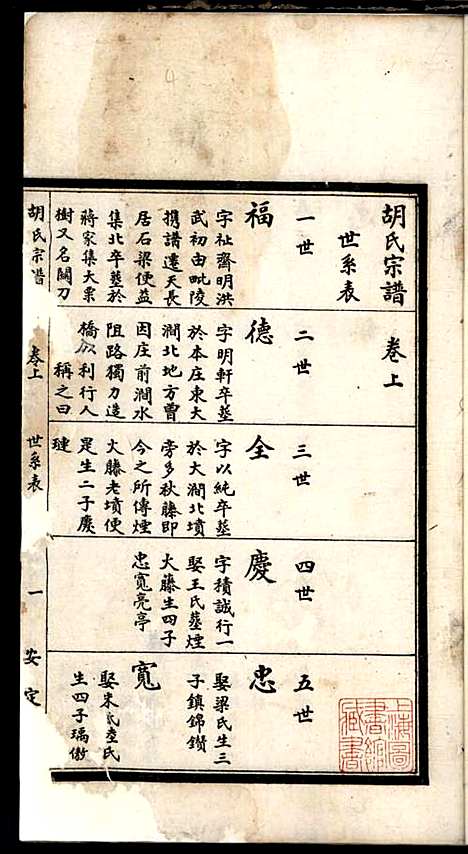 胡氏宗譜　卷上
世系表
一世
福
字祉齋明洪
武初由毗陵
携譜遷天長
居石梁便益
集北卒塟於
蔣家集大栗
樹又名關刀
二世
德
字明軒卒塟
於本庄東大
澗北地方曹
因庄前澗水
阻路獨力造
橋以利行人
稱之曰
三世
全
字以純卒塟
於大澗北墳
旁多秋藤即
今之所傳煙
火藤老墳便
是生二子慶
璉
四世
慶
字積誠行一
娶王氏塟煙
火藤生四子
忠寬亮亭
五世
忠
娶梁氏生三
子鎮錦鑽
寬
娶宋氏陸氏
生四子瑀傲
胡氏宗譜
卷上
世系表
一
安定
上海圖
書館
藏書